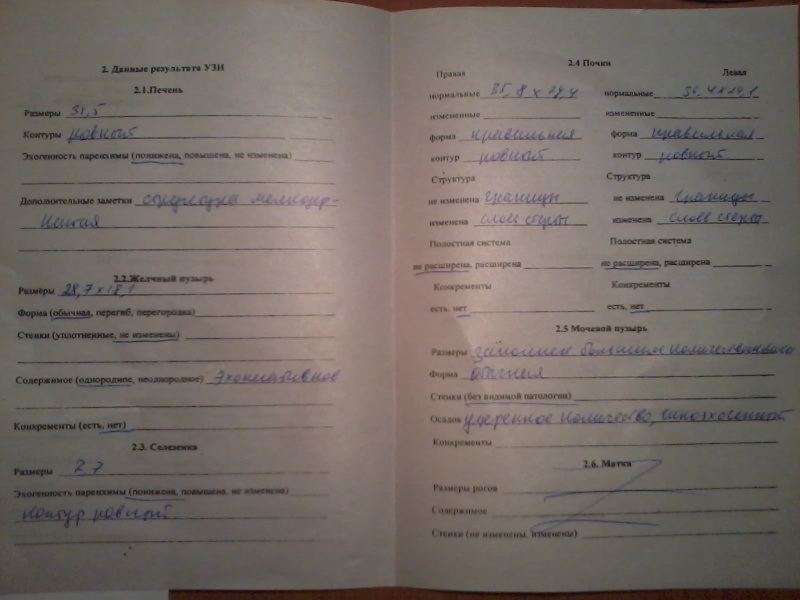 2. Данные результата УЗИ
2.1.Печень
Размеры 31,5
Контуры ровный
Эхогенность паренхимы (понижена, повышена, не изменена)
Дополнительные заметки структура мелкозер-
нистая
2.2.Желчный пузырь
Размеры 28,7х18,1
Форма (обычная, перегиб, перегородка)
Стенки (уплотненные, не изменены)
Содержимое (однородное, неоднородное) эхонегативное
Конкременты (есть, нет)
2.3. Селезенка
Размеры 2,7
Эхогенность паренхимы (понижена, повышена, не изменена)
контур ровный
2.4 Почки
Правая
Левая
нормальные 35,8 х
нормальные
измененные
измененные
форма правильная
форма правильная
контур ровный
контур ровный
Структура
Структура
не изменена границы
не изменена границы
изменена слоев стерты
изменена слоев стерты
Полостная система
Полостная система
не расширена, расширена
не расширена, расширена
Конкременты
Конкременты
есть, нет
есть, нет
2.5 Мочевой пузырь
Размеры заполнен большим количеством
Форма обычная
Стенки (без видимой патологии)
Осадок умеренное количество,
Конкременты
2.6. Матка
Размеры рогов
Содержимое
Стенки (не изменены, изменены)